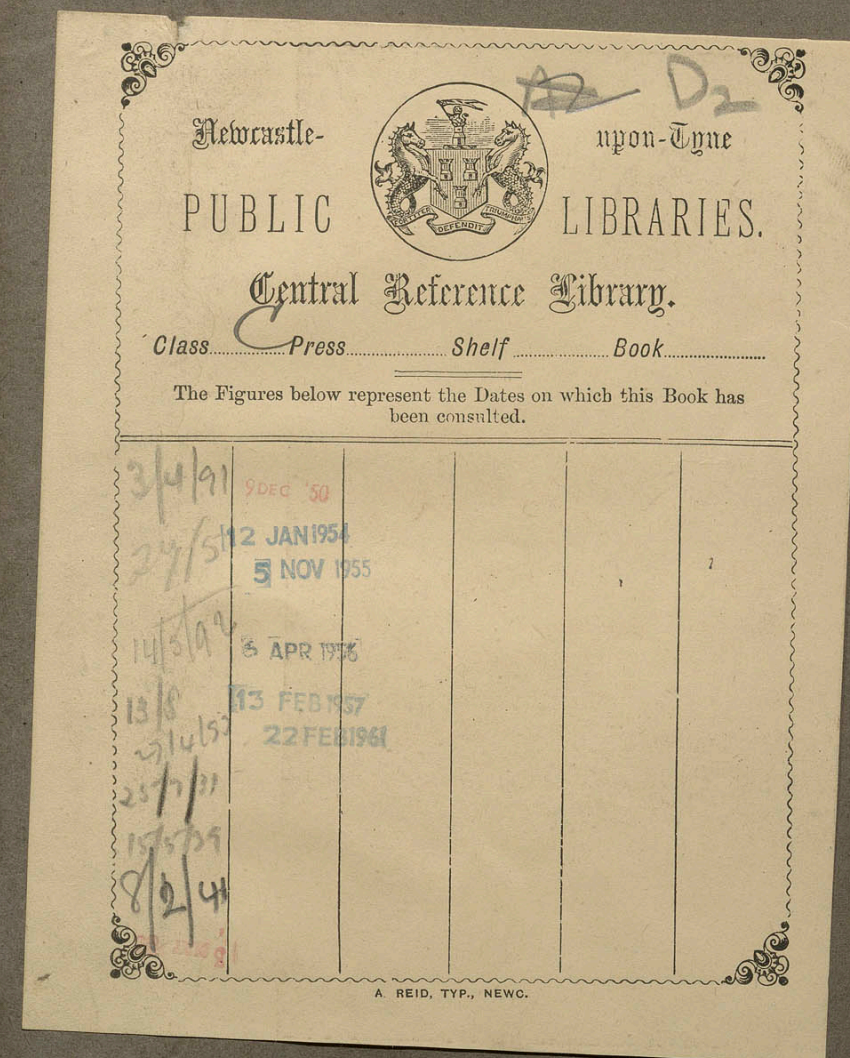 D2
Newcastle-upon-Tyne
PUBLIC LIBRARIES.
FORTITER DEFENDIT TRIUMPHANS
Central Reference Library.
Class C Press Shelf Book
The Figures below represent the Dates on which this Book has
been consulted.
3/4/91
14/3/92
13/8
8/2/41
9 DEC '50
12 JAN 1954
5 NOV 1955
6 APR 1956
13 FEB 1957
22 FEB 1961
A. REID, TYP., NEWC.